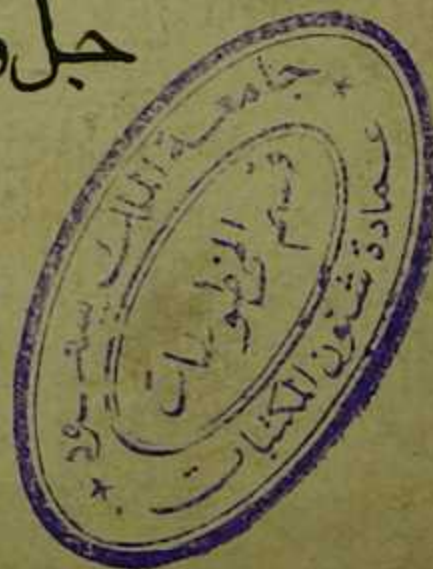 جل و
جامعة الملك سعود
عمادة شئون المكتبات
قسم
المخطوطات